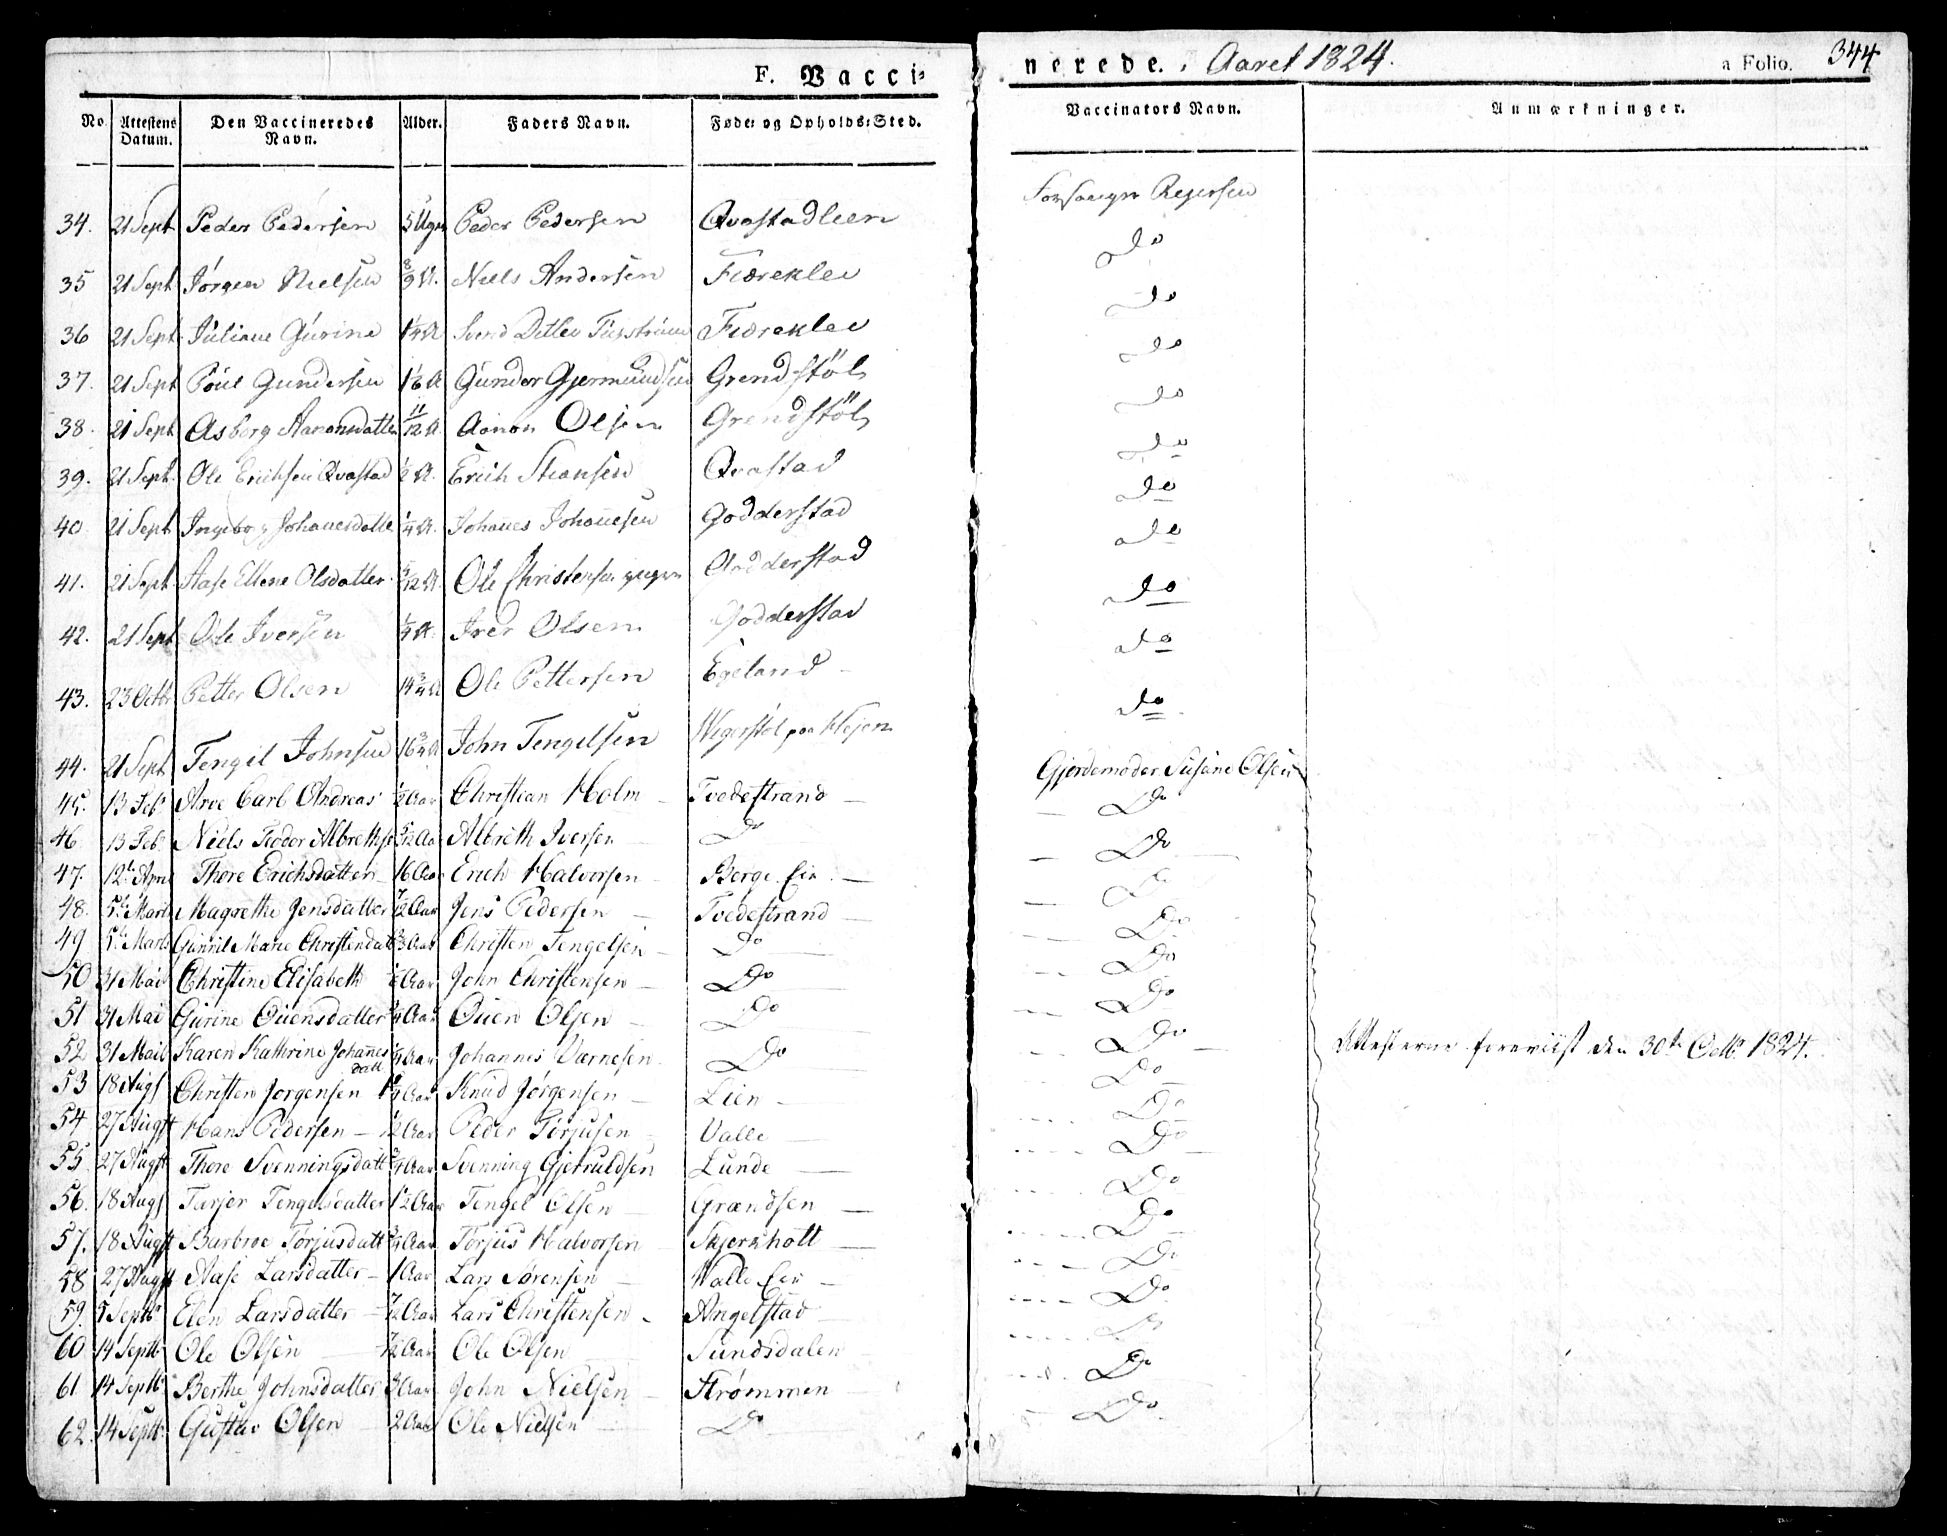 F. Vacci-
nerede. i Aaret 1824.
a Folio. 344
No. Attestens Datum. Den Vaccineredes Navn. Alder. Faders Navn. Føde- og Opholds-Sted. Vaccinators Navn. Anmærkninger.
34. 21 Sept Peder Pedersen 5 Uger Peder Pedersen Qvastadlien Regersen
35 21 Sept Jørgen Nielsen 8/9 A. Niels Andersen Fiæreklev do
36 21 Sept Juliane Gurine 1/4 A Svend Detlev Fiæreklev do
37. 21 Sept Poul Gundersen 1/6 A Gunder Gjermundsen Grendstøl do
38. 21 Sept Asborg Aanonsdatter 11/12 A Aanon Olsen Grendstøl do
39. 21 Sept Ole Erichsen Qvastad 1/2 A. Erich Qvastad do
40 21 Sept Ingeborg Johanesdatte 1/4 A. Johanes Johanesen Godderstad do
41. 21 Sept Aase Ellene Olsdatter Ole Christensen Godderstad do
42. 21 Sept Ole Iversen 1/4 A. Iver Olsen Godderstad do
43. 23 Octb Petter Olsen 14 3/4 A Ole Pettersen Egeland do
44. 21 Sept Tengil Johnsen 16 3/4 A John Tengelsen Wegerstøl paa Hejen do
45. 13 Feb. Arve Carl Andreas 1/2 Aar Christian Holm Tvedestrand Gjordemoder Susane Olsen
46 13 Feb. Niels Teodor Albrethse 5/12 Aar Albreth Iversen Do Do
47. 12te April Thore Erichsdatter 16 Aar Erich Halvorsen Berge Eie Do
48. 5te Marts Magrethe Jensdatter 1/2 Aar Jens Pedersen Tvedestrand Do
49 5te Marts Gunnil Marie Christendat 2/3 Aar Christen Tengelsen Do Do
50 31 Mai Christine Elisabeth Aar John Christensen Do Do
51 31 Mai Gurine Ouensdatter 1/4 Aar Ouen Olsen Do Do
52 31 Mai Karen Kathrine Johannesdatt 1/4 Aar Johannis Værnesen Do Do Attesterne foreviist den 30te Octbr 1824.
53 18 Augs Christen Jorgensen Aar Knud Jørgensen Lien Do
54 27 Augst Hans Pedersen 1/2 Aar Peder Torjusen Valle Do
55 27 Augst Thore Svenningsdatt 3/4 Aar Svenning Gjetruldsen Lunde Do
56. 18 Augs Tarjer Tengelsdatter 1 1/2 Aar Tengel Olsen Grændsen Do
57. 18 Augst Barbroe Torjusdatt 3/4 Aar Torjus Halvorsen Skjerkholt Do
58 27 Augst Aase Larsdatter 1 Aar Lars Sørensen Walle Eie Do
59. 5 Septb. Elen Larsdatter 1/2 Aar Lars Christensen Angelstad Do
60. 14 Septb Ole Olsen 1/2 Aar Ole Olsen Sundsdalen Do
61 14 Septb Berthe Johnsdatter Aar John Nielsen Strømmen Do
62. 14 Septb Gustav Olsen 2 Aar Ole Nielsen Do Do